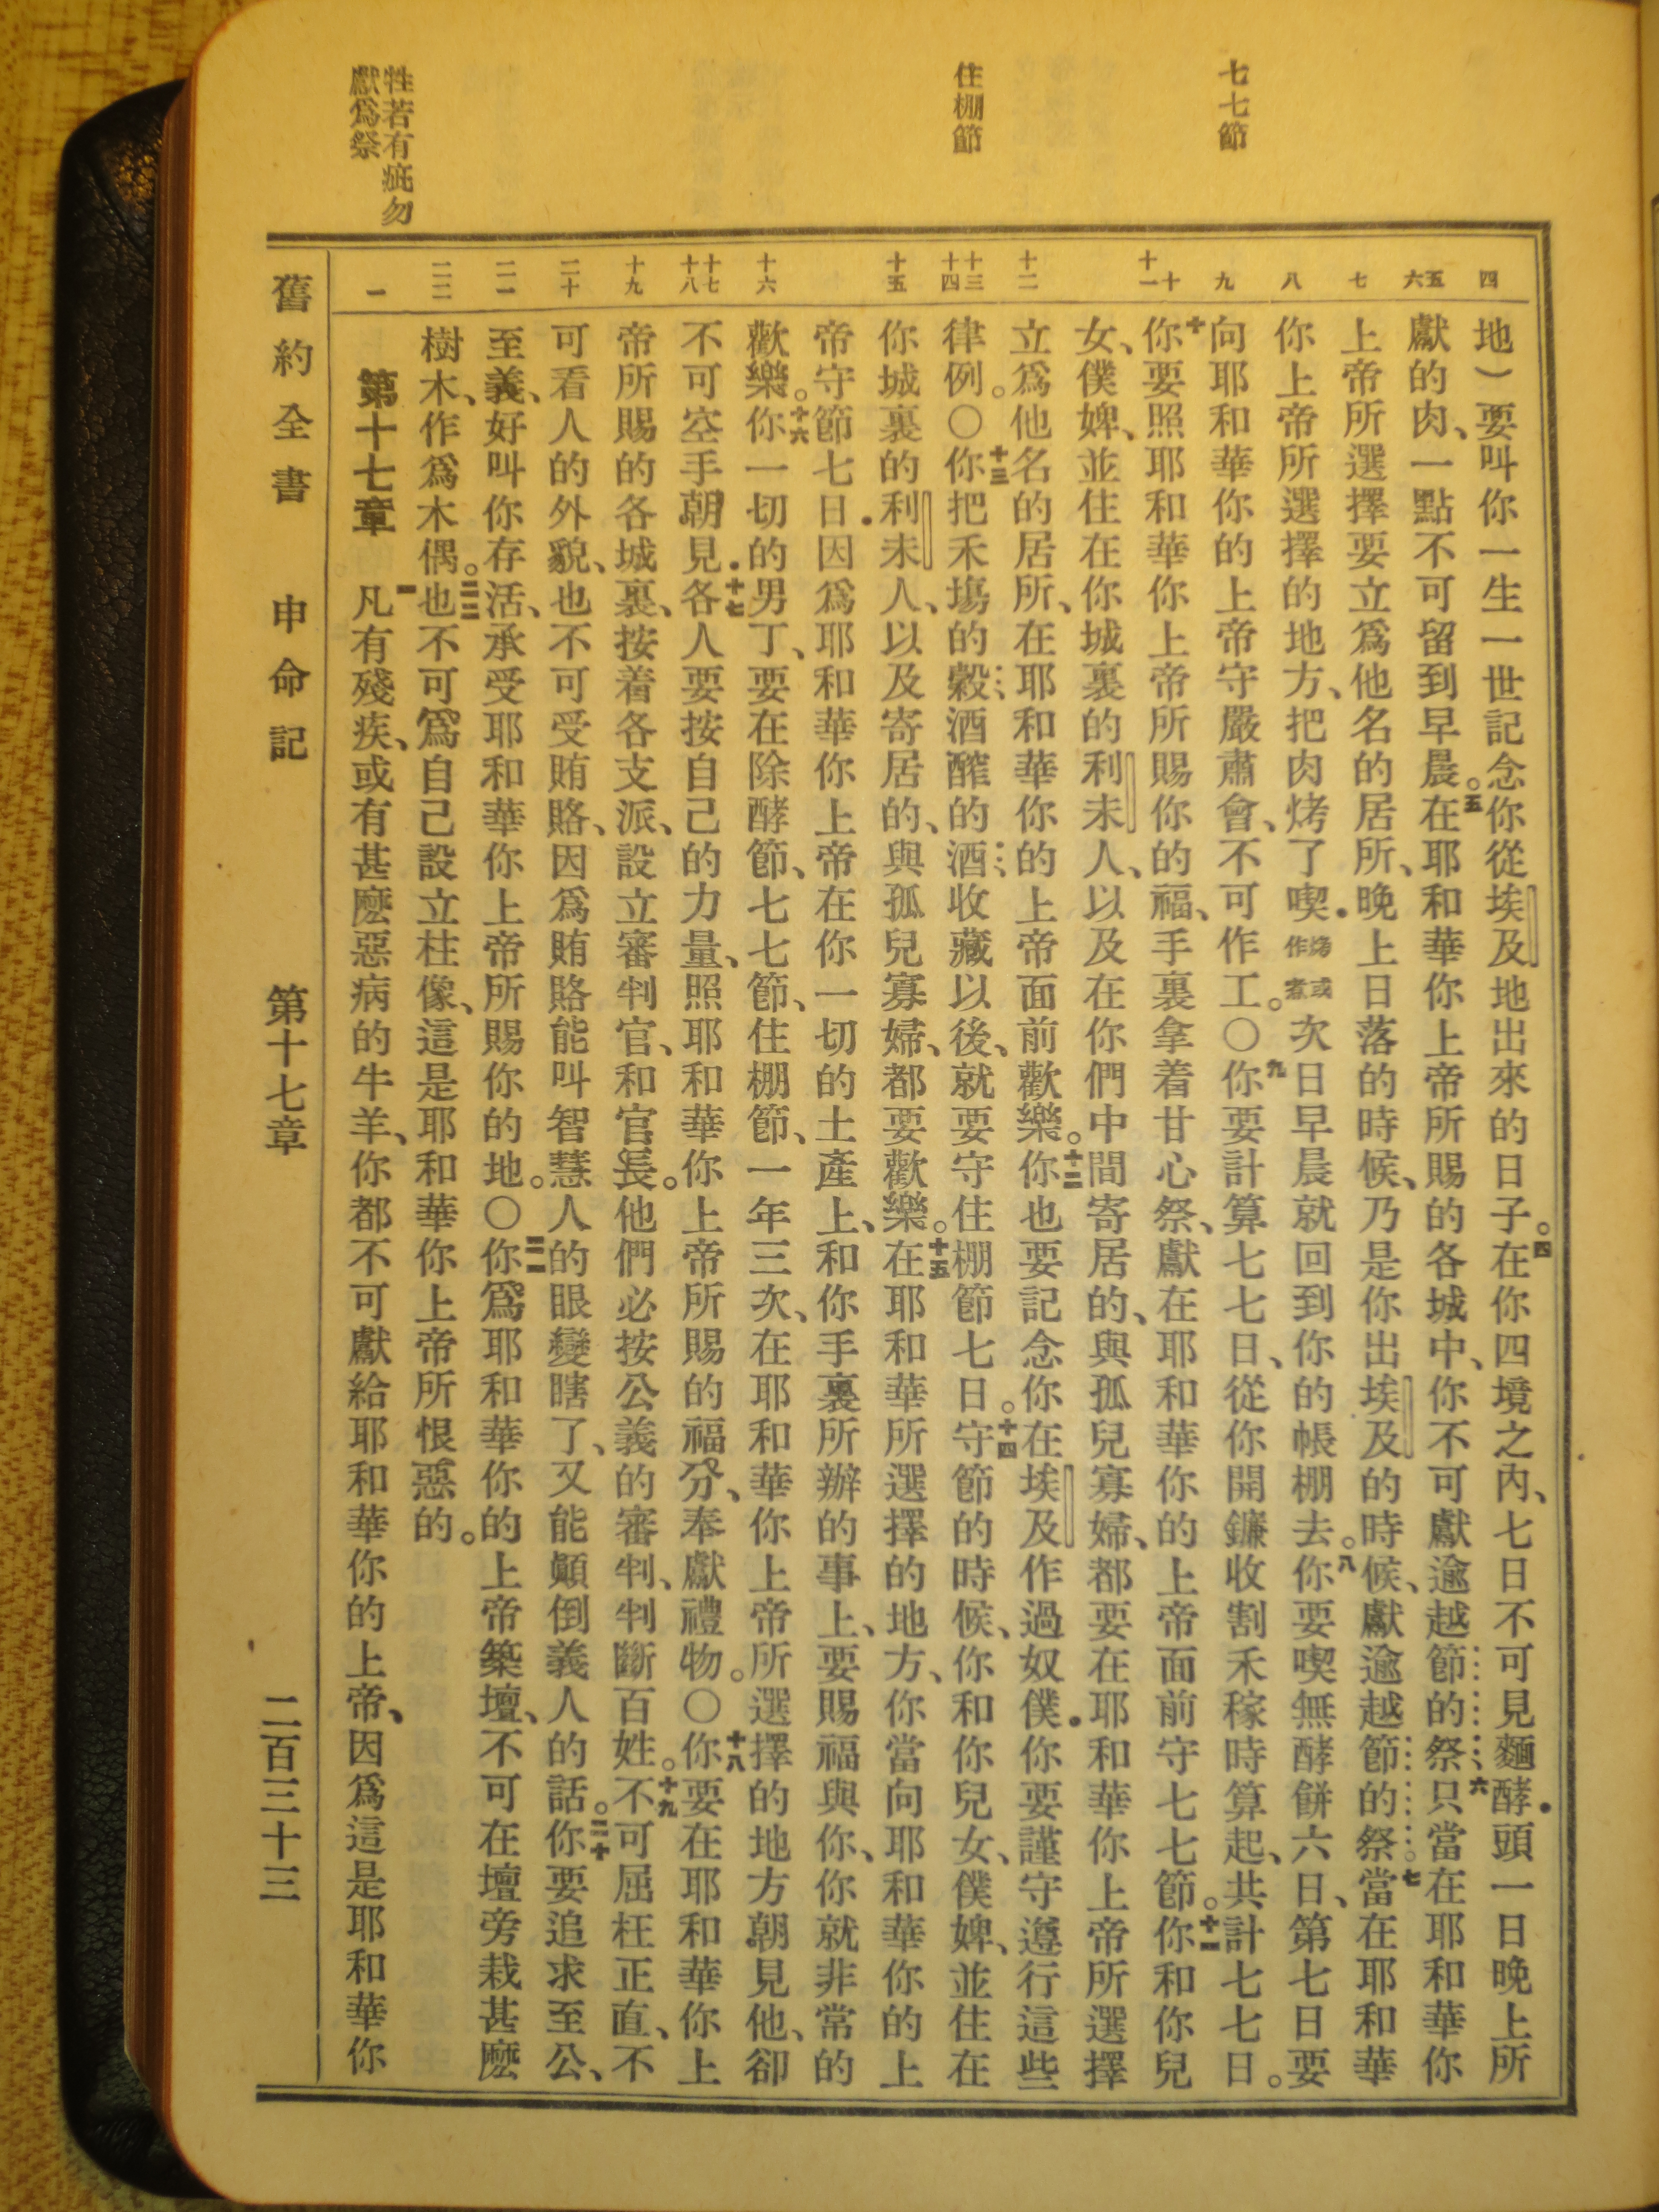 七七節
住棚節
牲若有疵勿
獻爲祭
四
五
六
七
八
九
十
十一
十二
十三
十四
十五
十六
十七
十八
十九
二十
二一
二二
一
地）要叫你一生一世記念你從埃及地出來的日子。四在你四境之內、七日不可見麵酵．頭一日晚上所
獻的肉、一點不可留到早晨。五在耶和華你上帝所賜的各城中、你不可獻逾越節的祭、六只當在耶和華你
上帝所選擇要立爲他名的居所、晚上日落的時候、乃是你出埃及的時候、獻逾越節的祭。七當在耶和華
你上帝所選擇的地方、把肉烤了喫．烤或作煮次日早晨就回到你的帳棚去。八你要喫無酵餅六日、第七日要
向耶和華你的上帝守嚴肅會、不可作工。〇九你要計算七七日、從你開鐮收割禾稼時算起、共計七七日。
十你要照耶和華你上帝所賜你的福、手裏拿着甘心祭、獻在耶和華你的上帝面前守七七節。十一你和你兒
女、僕婢、並住在你城裏的利未人、以及在你們中間寄居的、與孤兒寡婦、都要在耶和華你上帝所選擇
立爲他名的居所、在耶和華你的上帝面前歡樂。十二你也要記念你在埃及作過奴僕．你要謹守遵行這些
律例。〇十三你把禾塲的穀、酒醡的酒收藏以後、就要守住棚節七日。十四守節的時候、你和你兒女、僕婢、並住在
你城裏的利未人、以及寄居的、與孤兒寡婦、都要歡樂。十五在耶和華所選擇的地方、你當向耶和華你的上
帝守節七日．因爲耶和華你上帝在你一切的土產上、和你手裏所辦的事上、要賜福與你、你就非常的
歡樂。十六你一切的男丁、要在除酵節、七七節、住棚節、一年三次、在耶和華你上帝所選擇的地方朝見他、卻
不可空手朝見．十七各人要按自己的力量、照耶和華你上帝所賜的福分、奉獻禮物。〇十八你要在耶和華你上
帝所賜的各城裏、按着各支派、設立審判官、和官長。他們必按公義的審判、判斷百姓。十九不可屈枉正直、不
可看人的外貌、也不可受賄賂、因爲賄賂能叫智慧人的眼變瞎了、又能顚倒義人的話。二十你要追求至公、
至義、好叫你存活、承受耶和華你上帝所賜你的地。〇二一你爲耶和華你的上帝築壇、不可在壇旁栽甚麽
樹木、作爲木偶。二二也不可爲自己設立柱像、這是耶和華你上帝所恨惡的。
第十七章　一凡有殘疾、或有甚麽惡病的牛羊、你都不可獻給耶和華你的上帝、因爲這是耶和華你
舊約全書　申命記　第十七章　二百三十三